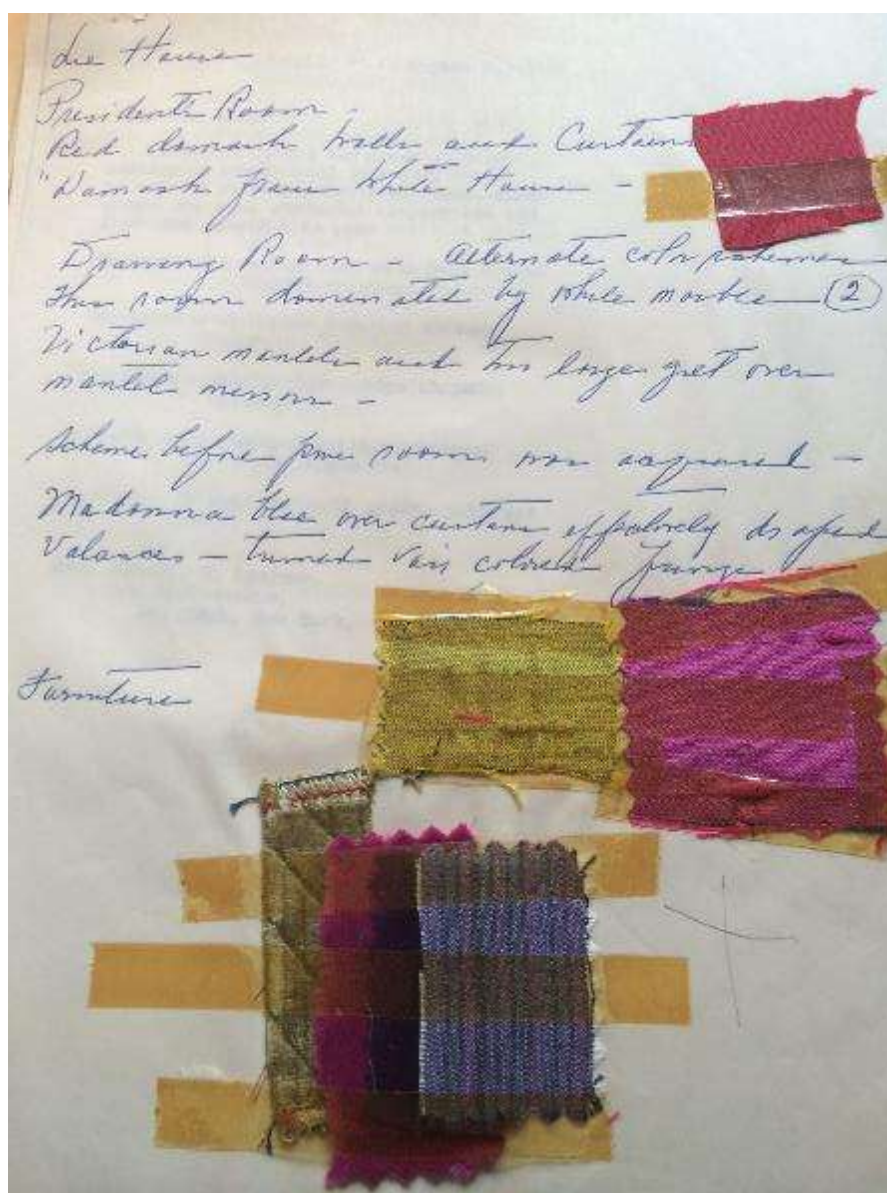 Lee House
Presidents Room -
Red damask walls and Curtains
"Damask from White House -
Drawing Room - alternate color schemes
This room dominated by white marble (2)
Victorian mantels and two large gilt over
mantel mirrors -
Scheme before room was acquired -
Madonna blue over curtains effectively draped
Valances - trimmed colored fringe -
Furniture